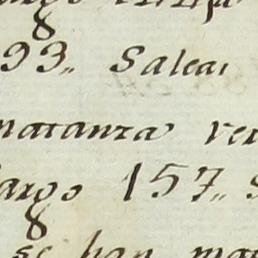 93,, Saleai
matanza ver
argo 157,, S
se han mat